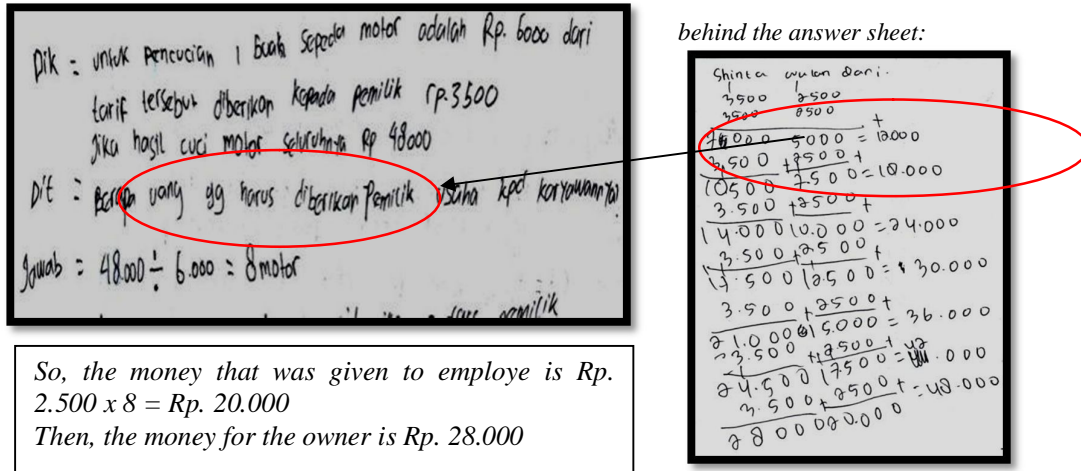 Dik = untuk Pencucian 1 buah sepeda motor adalah Rp. 6000 dari
tarif tersebut diberikan kepada Pemilik rp.3500
Jika hasil cuci motor seluruhnya Rp 48000
Dit = Berapa uang yg harus diberikan Pemilik usaha kpd karyawannya
Jawab = 48.000 ÷ 6.000 = 8 motor
pemilik
So, the money that was given to employe is Rp.
2.500 x 8 = Rp. 20.000
Then, the money for the owner is Rp. 28.000
behind the answer sheet:
Shinta wulan dari.
3500 2500
3500 2500 +
7000 5000 = 12.000
3.500 + 2500 +
10500 7500 = 18.000
3.500 + 2500 +
14.000 10.000 = 24.000
3.500 + 2500
17.500 12500 = 30.000
3.500 + 2500 +
21.000 15.000 = 36.000
3.500 + 2500 +
24.500 17500 = 42.000
3.500 + 2500 +
28000 20.000 = 48.000